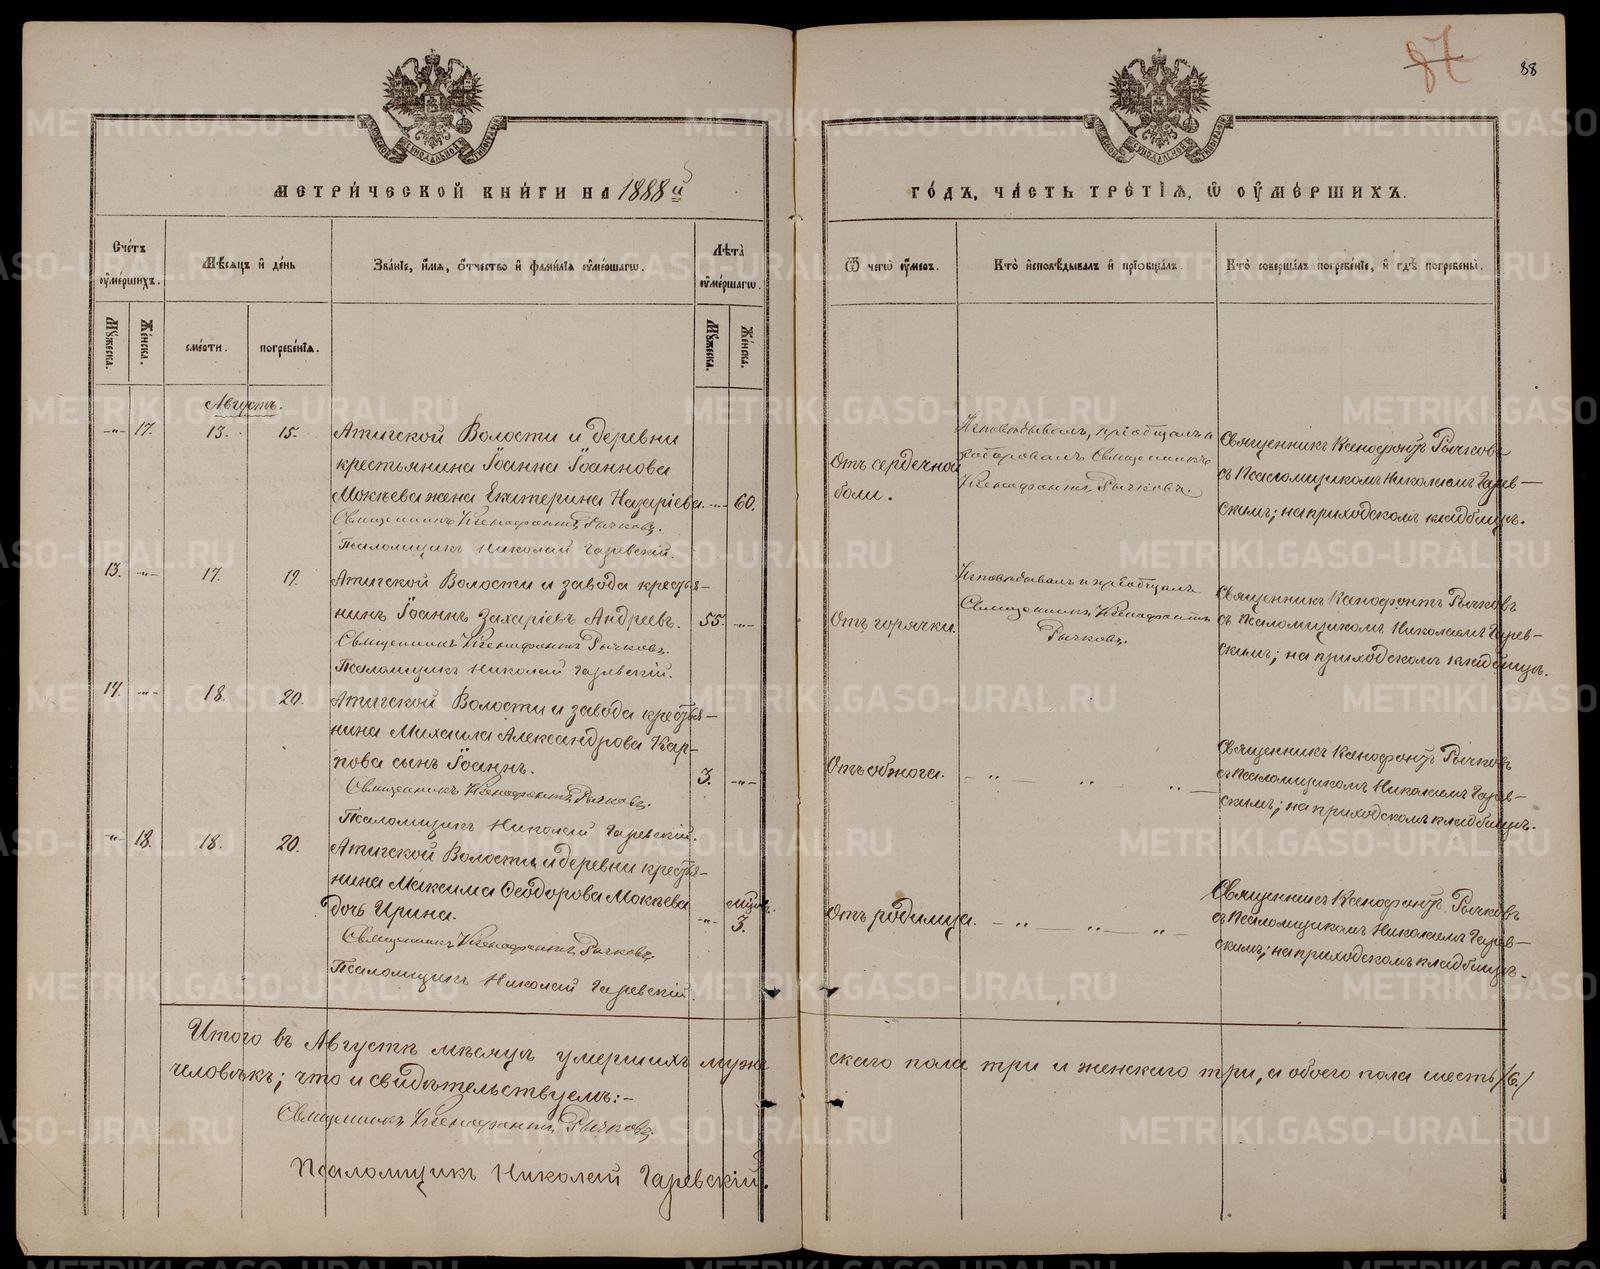 87
88
МЕТРИ́ЧЕСКОЙ КНИ́ГИ НА 1888й
ГО́ДЪ, ЧА́СТЬ ТРЕ́ТІѦ, Ѿ ОУМЕ́РШИХЪ.
Сче́тъ оуме́ршихъ.
Мѣ́сяцъ и де́нь
Зва́ніе, и́мя, о́тчество и фами́лія оуме́ршагѡ.
Лѣта̀ оуме́ршагѡ.
Ѿ чегѡ̀ оу́меръ.
Кто̀ исповѣ́дывалъ и пріобща́лъ.
Кто̀ соверша́лъ погребе́ніе, и гдѣ̀ погребены̀.
Му́жеска.
Же́нска.
сме́рти.
погребе́нія.
Му́жеска.
Же́нска.
Августъ.
-"- 17. 13. 15. Атигской Волости и деревни
крестьянина Іоанна Іоаннова
Мокѣева жена Екатерина Назаріева -"- 60.
Священникъ Ксенофонтъ Рычковъ.
Псаломщикъ Николай Гаревскій.
Отъ сердечной
боли.
Исповѣдывалъ, пріобщалъ и
Священникъ
Ксенофонтъ Рычковъ.
Священникъ Ксенофонтъ Рычковъ
съ Псаломщикомъ Николаемъ Гарев-
скимъ; на приходскомъ кладбищѣ.
13. -"- 17. 19. Атигской Волости и завода крестья-
нинъ Іоаннъ Захаріевъ Андреевъ. 55. -"-
Священникъ Ксенофонтъ Рычковъ.
Псаломщикъ Николай Гаревскій.
Отъ горячки.
Исповѣдывалъ и пріобщалъ
Священникъ Ксенофонтъ
Рычковъ.
Священникъ Ксенофонтъ Рычковъ
съ Псаломщикомъ Николаемъ Гарев-
скимъ; на приходскомъ кладбищѣ.
14. -"- 18. 20. Атигской Волости и завода крестья-
нина Михаила Александрова Кар-
пова сынъ Іоаннъ. 3. -"-
Священникъ Ксенофонтъ Рычковъ.
Псаломщикъ Николай Гаревскій.
Отъ обжога. - " - " - " -
Священникъ Ксенофонтъ Рычковъ
съ Псаломщикомъ Николаемъ Гарев-
скимъ; на приходскомъ кладбищѣ.
-"- 18. 18. 20. Атигской Волости и деревни крестья-
нина Максима Ѳеодорова Мокѣева
дочь Ирина. -"- мѣсяц. 3.
Священникъ Ксенофонтъ Рычковъ.
Псаломщикъ Николай Гаревскій.
Отъ родимца. - " - " - " -
Священникъ Ксенофонтъ Рычковъ
съ Псаломщикомъ Николаемъ Гарев-
скимъ; на приходскомъ кладбищѣ.
Итого въ Августѣ мѣсяцѣ умершихъ муже
скаго пола три и женскаго три, а обоего пола шесть /6./
человѣкъ; что и свидѣтельствуемъ:-
Священникъ Ксенофонтъ Рычковъ.
Псаломщикъ Николай Гаревскій.
METRIKI.GASO-URAL.RU